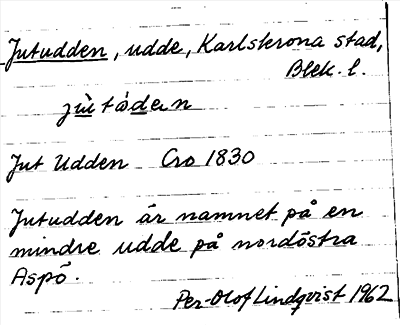 Jutudden, udde, Karlskrona stad,
Blek. l.
jùtòden
Jut Udden Cro 1830
Jutudden är namnet på en
mindre udde på nordöstra
Aspö.
Per-Olof Lindqvist 1962